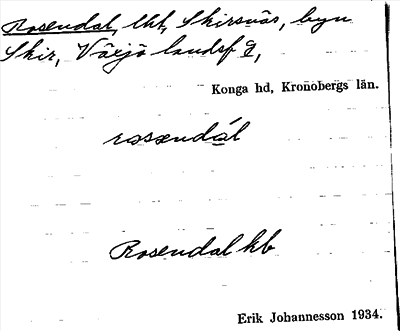 Rosendal, lht, Skirsnäs, byn
Skir, Växjö landsf g,
Konga hd, Kronobergs län.
rosendál
Rosendal hb
Erik Johannesson 1934.